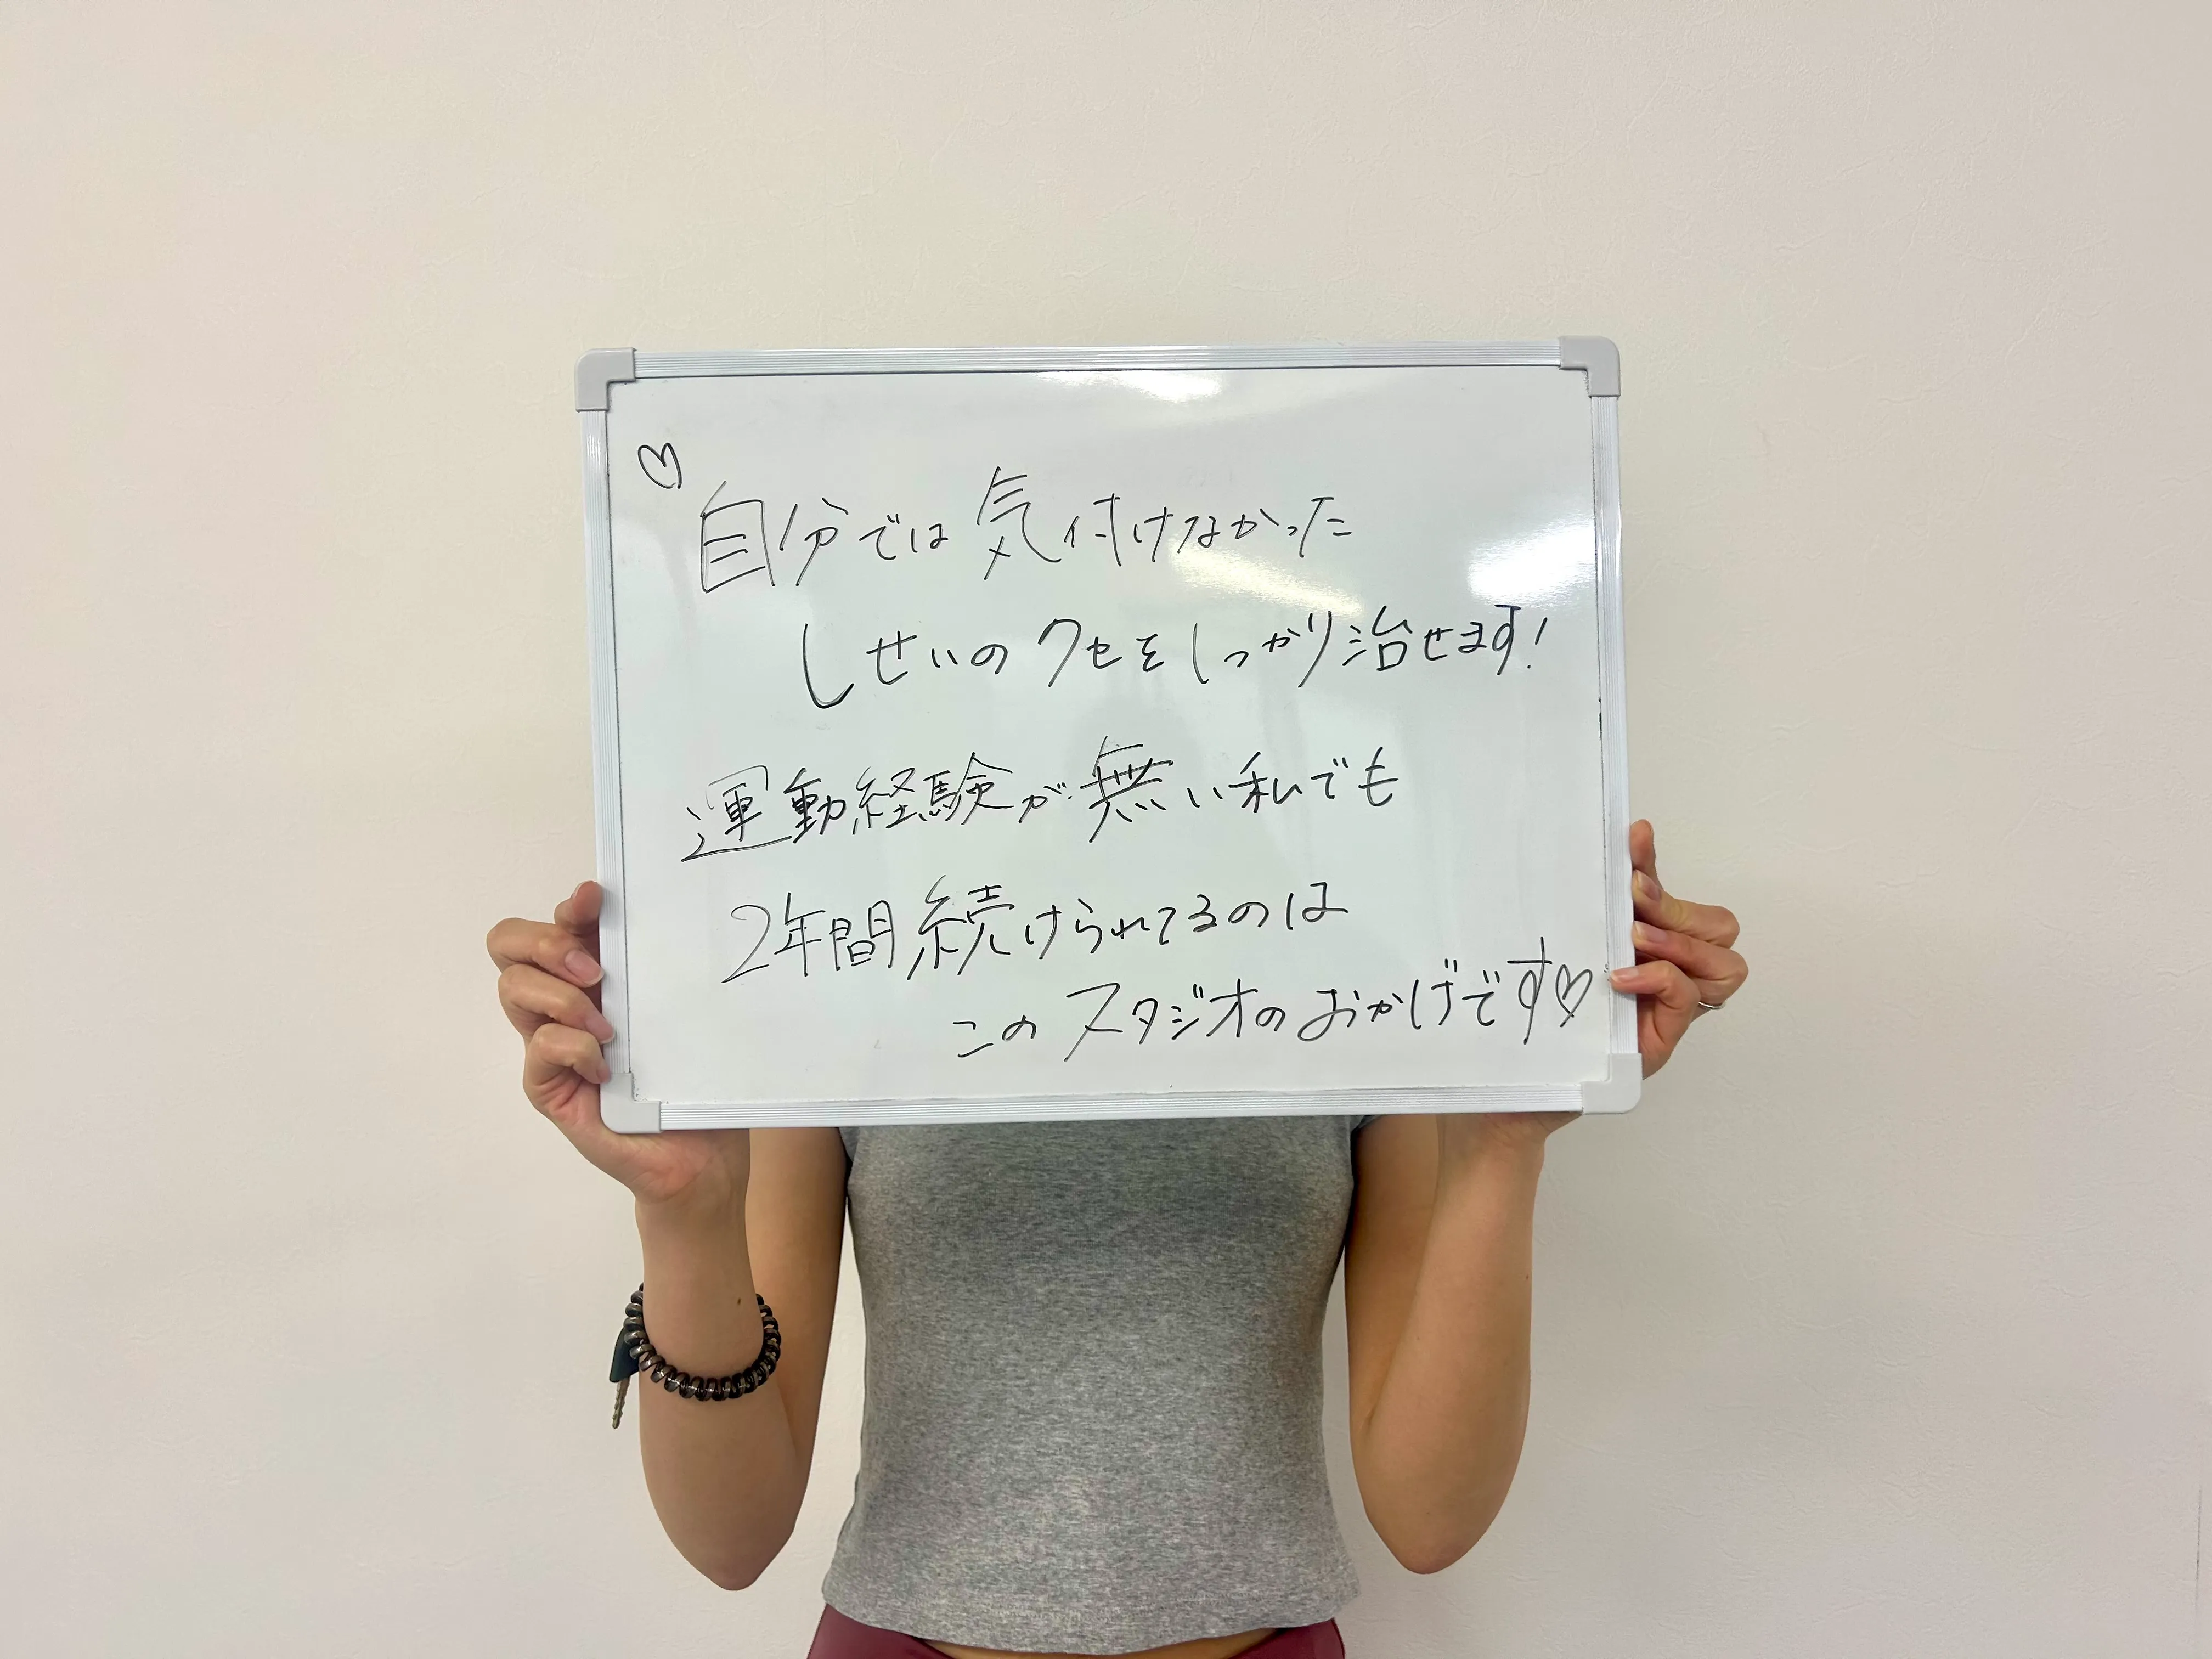 ♡
自分では気付けなかった
しせいのクセをしっかり治せます!
運動経験が無い私でも
2年間続けられてるのは
このスタジオのおかげです♡